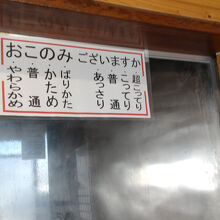 おこのみございますか
・超こってり
・こってり
・普通
・あっさり
・ばりかた
・かため
・普通
・やわらかめ